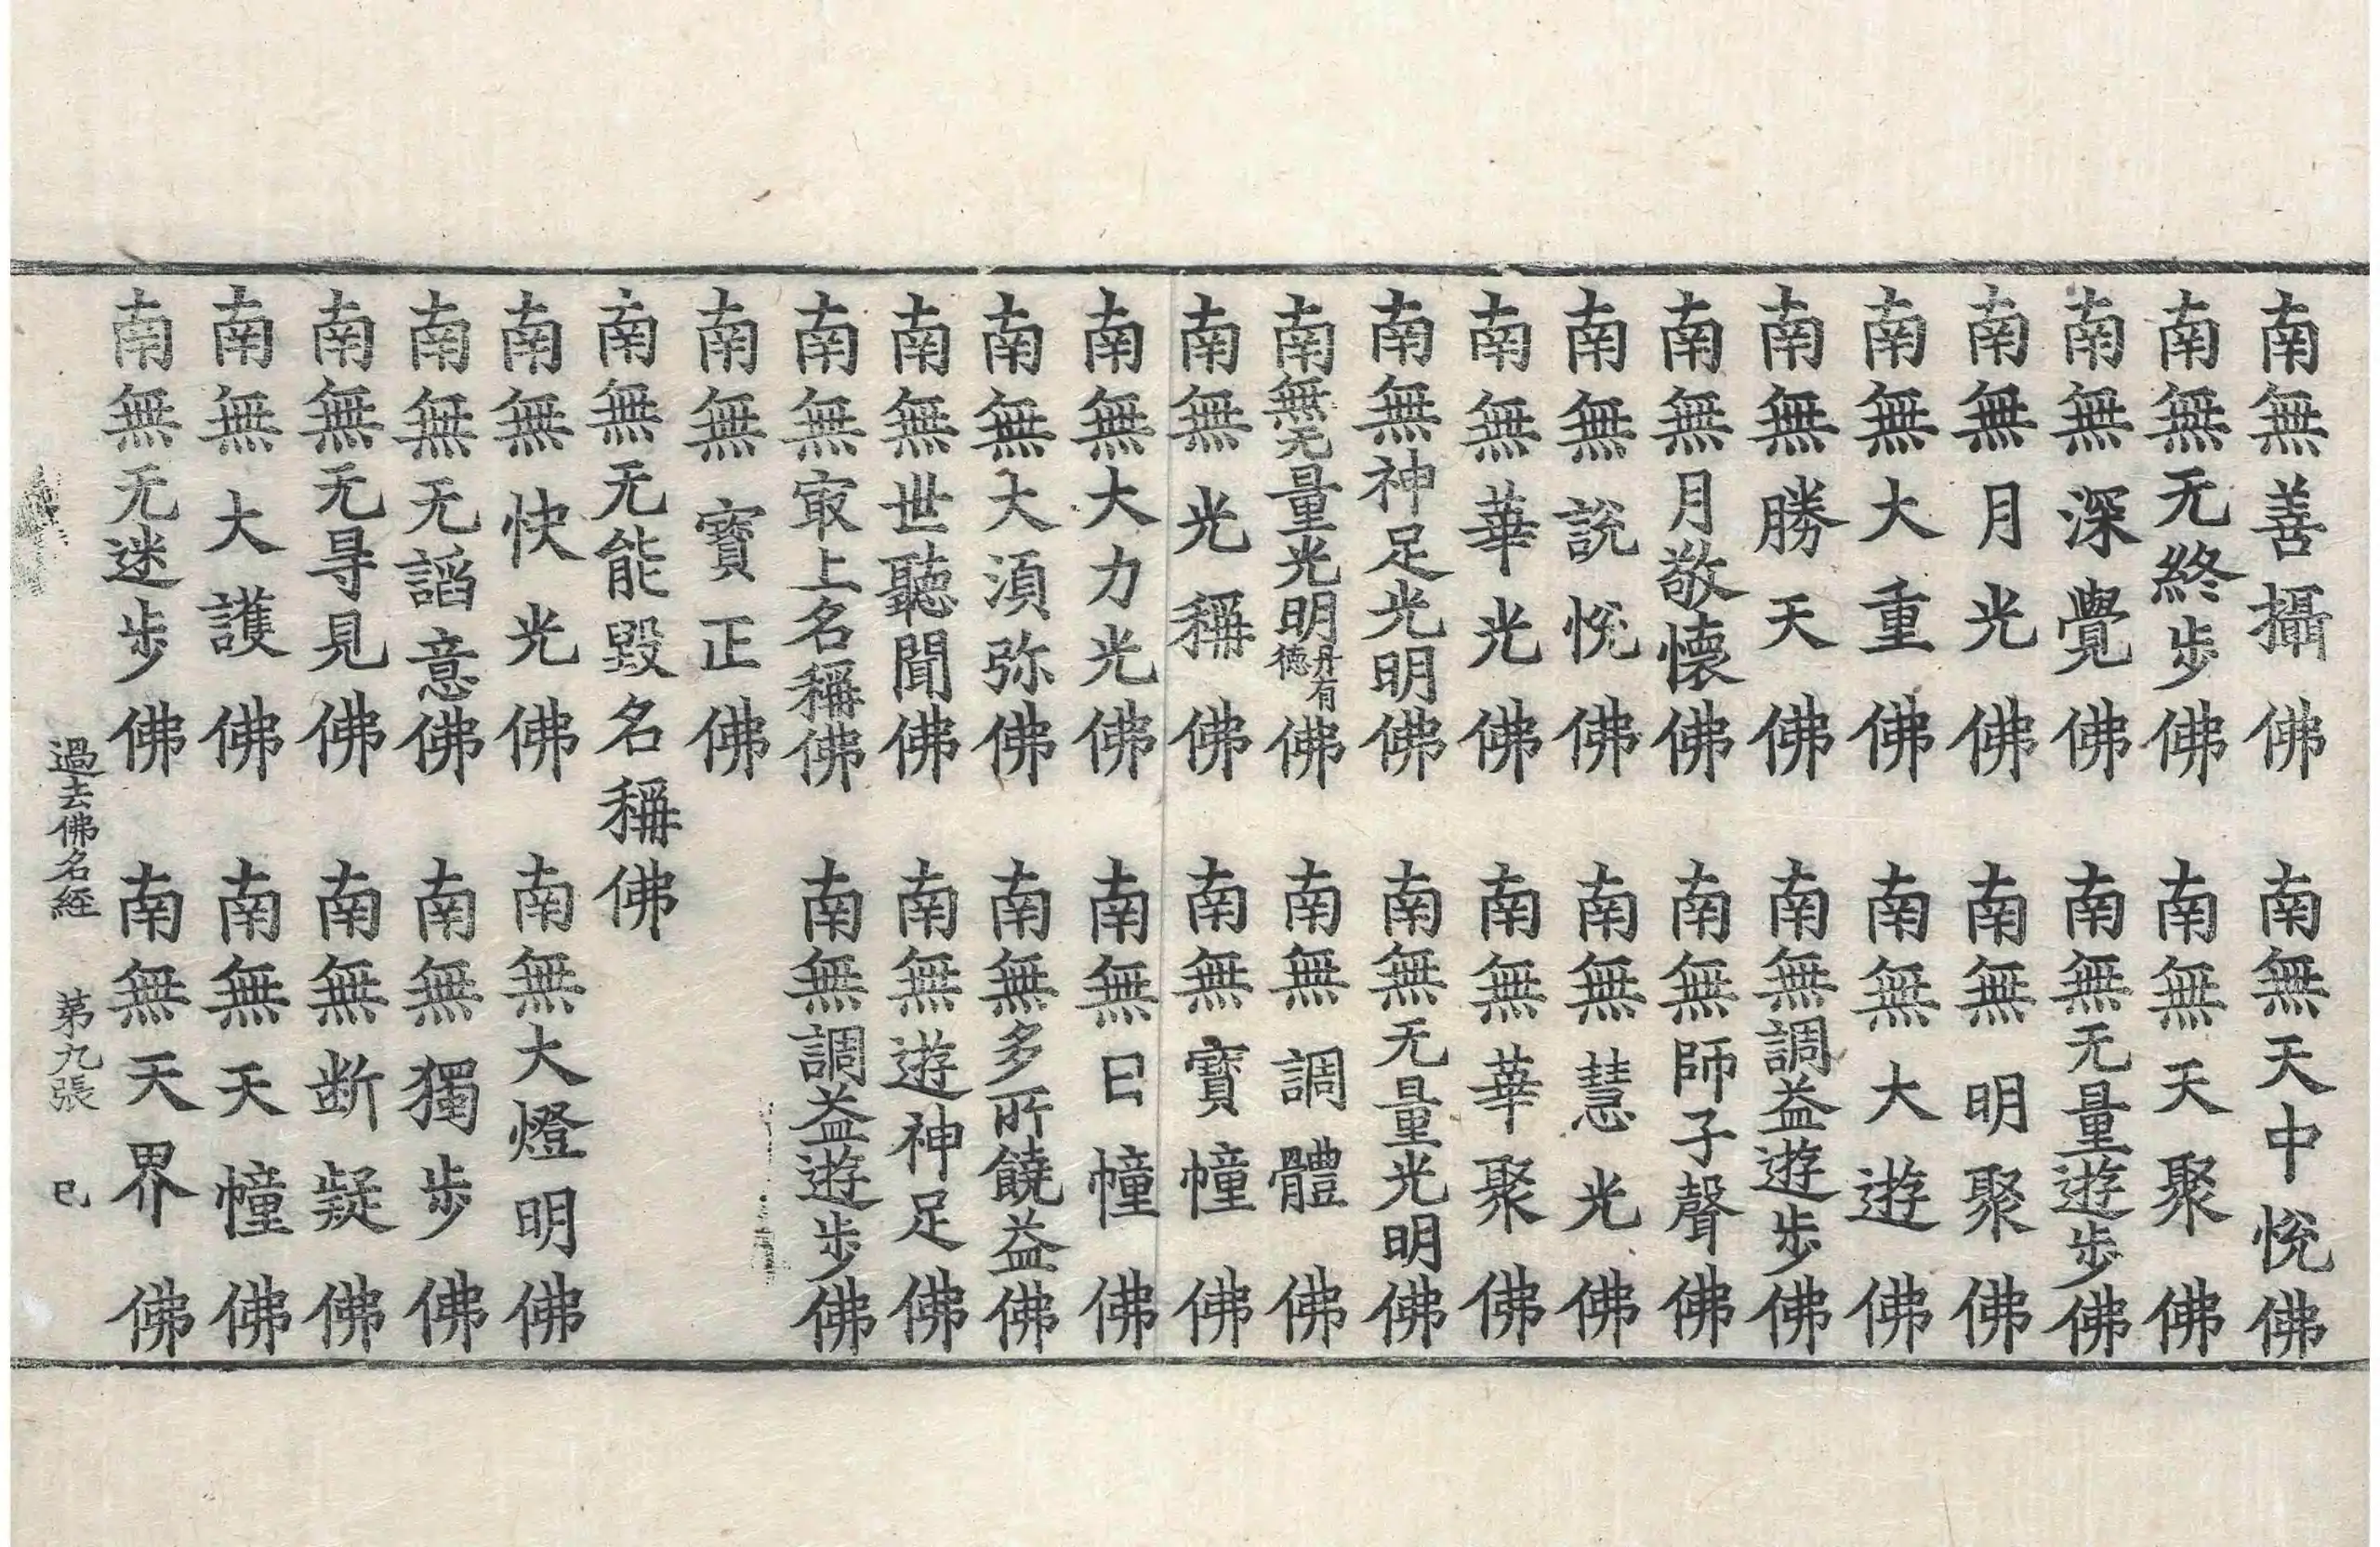 南無善攝佛　南無天中悅佛
南無无終步佛　南無天聚佛
南無深覺佛　南無无量遊步佛
南無月光佛　南無明聚佛
南無大重佛　南無大遊佛
南無勝天佛　南無調益遊步佛
南無月敬懷佛　南無師子聲佛
南無說悅佛　南無慧光佛
南無華光佛　南無華聚佛
南無神足光明佛　南無无量光明佛
南無无量光明丹有德佛　南無調體佛
南無光稱佛　南無寶幢佛
南無大力光佛　南無日幢佛
南無大湏弥佛　南無多所饒益佛
南無世聽聞佛　南無遊神足佛
南無㝡上名稱佛　南無調益遊步佛
南無寶正佛
南無无能毀名稱佛
南無快光佛　南無大燈明佛
南無无謟意佛　南無獨步佛
南無无㝵見佛　南無断疑佛
南無大護佛　南無天幢佛
南無无迷步佛　南無天界佛
過去佛名経　苐九張　巳